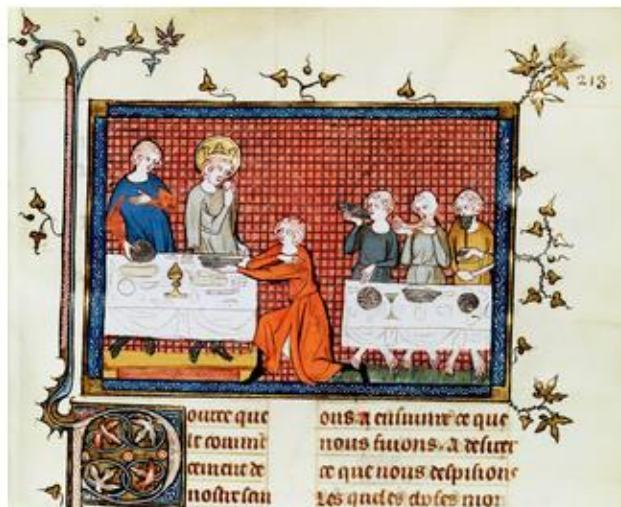 213.
ource que
le comme
cement de
nostre sau
ons a ensuiure ce que
nous fuions. a desirer
ce que nous despisions
Les queles choses mor